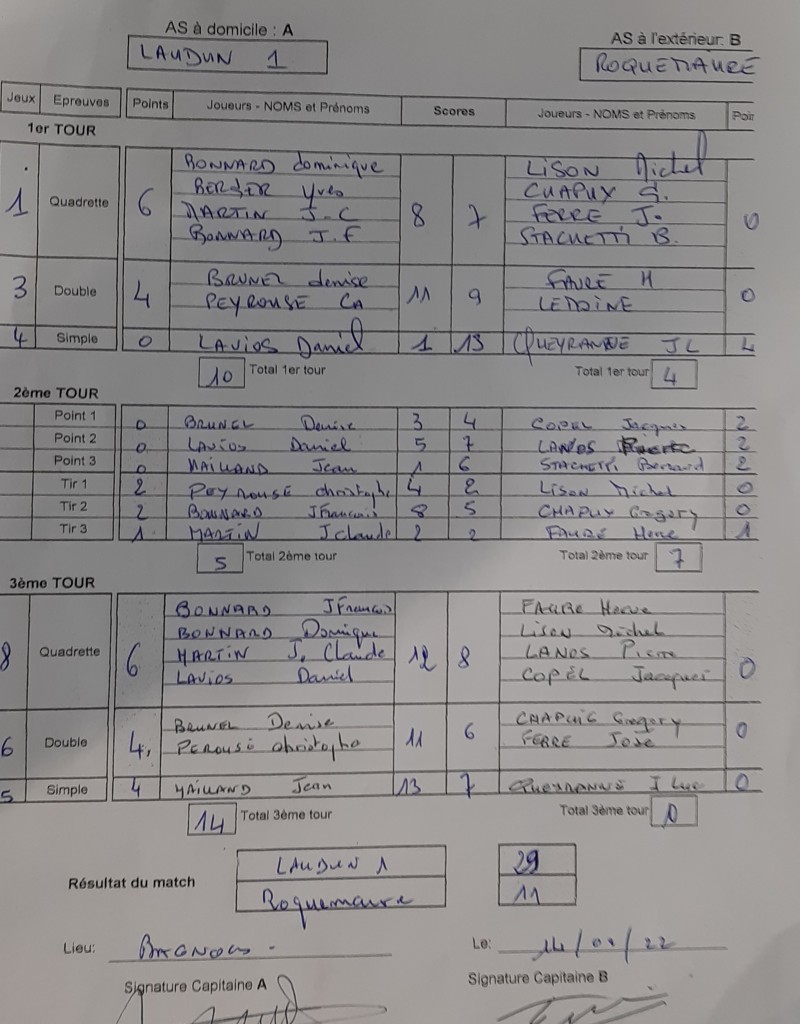 AS à domicile : A
LAUDUN 1
AS à l'extérieur: B
ROQUEMAURE
Jeux Epreuves Points Joueurs - NOMS et Prénoms Scores Joueurs - NOMS et Prénoms Poin
1er TOUR
1 Quadrette 6 8 7 0
BONNARD dominique LISON Michel
BERGER Yves CHAPUY G.
MARTIN J-C FERRE J.
BONNARD J.F STACHETTI B.
3 Double 4 11 9 0
BRUNEL denise FAURE H
PEYROUSE CA LEDOINE
4 Simple 0 LAVIOS Daniel 1 13 QUEYRANNE JL 4
10 Total 1er tour Total 1er tour 4
2ème TOUR
Point 1 0 BRUNEL Denise 3 4 COPEL Jacques 2
Point 2 0 LAVIOS Daniel 5 7 LANOS 2
Point 3 0 MAILLAND Jean 1 6 STACHETTI Bernard 2
Tir 1 2 PEYROUSE christophe 4 2 Lison Michel 0
Tir 2 2 BONNARD JFrancois 8 5 CHAPUY Gregory 0
Tir 3 1 MARTIN Jclaude 2 2 FAURE Herve 1
5 Total 2ème tour Total 2ème tour 7
3ème TOUR
8 Quadrette 6 12 8 0
BONNARD JFrancois FAURE Herve
BONNARD Dominique Lison Michel
MARTIN J. Claude LANOS Pierre
LAVIOS Daniel COPEL Jacques
6 Double 4, 11 6 0
BRUNEL Denise CHAPUIS Gregory
PEROUSE christophe FERRE José
5 Simple 4 MAILLAND Jean 13 7 QUEYRANNE J Luc 0
14 Total 3ème tour Total 3ème tour 0
Résultat du match
LAUDUN 1 29
Roquemaure 11
Lieu: BAGNOLS - Le: 14/01/22
Signature Capitaine A Signature Capitaine B